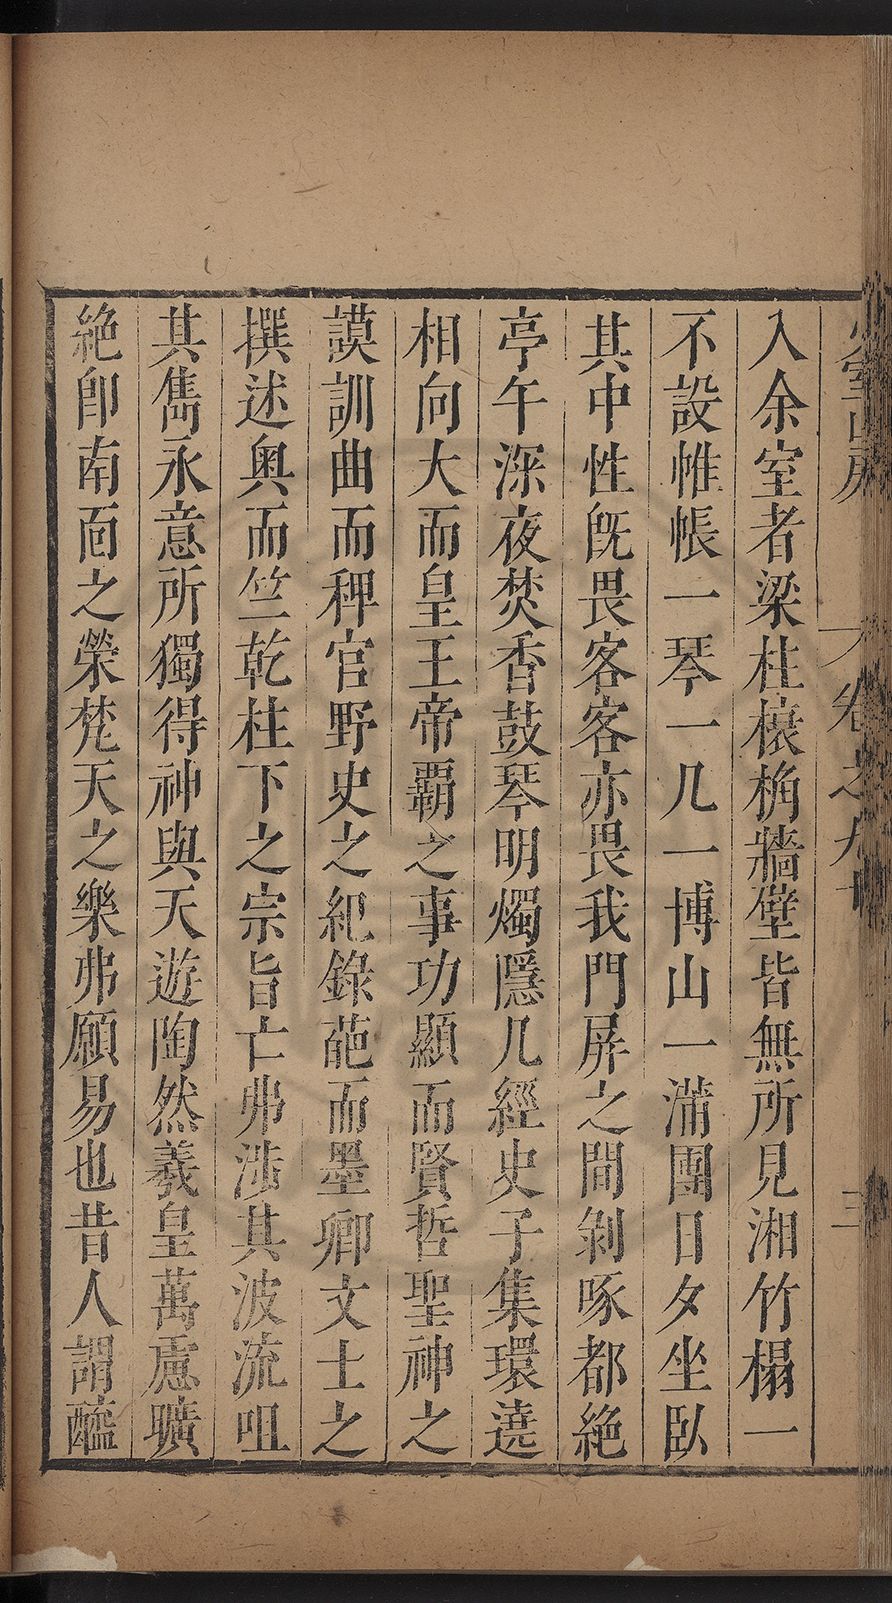 少室山房
卷之九十
三
入余室者梁柱榱桷牆壁皆無所見湘竹榻一
不設帷帳一琴一几一博山一蒲團日夕坐臥
其中性旣畏客客亦畏我門屏之間剝啄都絶
亭午深夜焚香鼓琴明燭隱几經史子集環遶
相向大而皇王帝覇之事功顯而賢哲聖神之
謨訓曲而稗官野史之紀錄葩而墨卿文士之
撰述奥而竺乾柱下之宗旨亡弗涉其波流咀
其雋永意所獨得神與天遊陶然羲皇萬慮曠
絶卽南面之榮梵天之樂弗願易也昔人謂醯